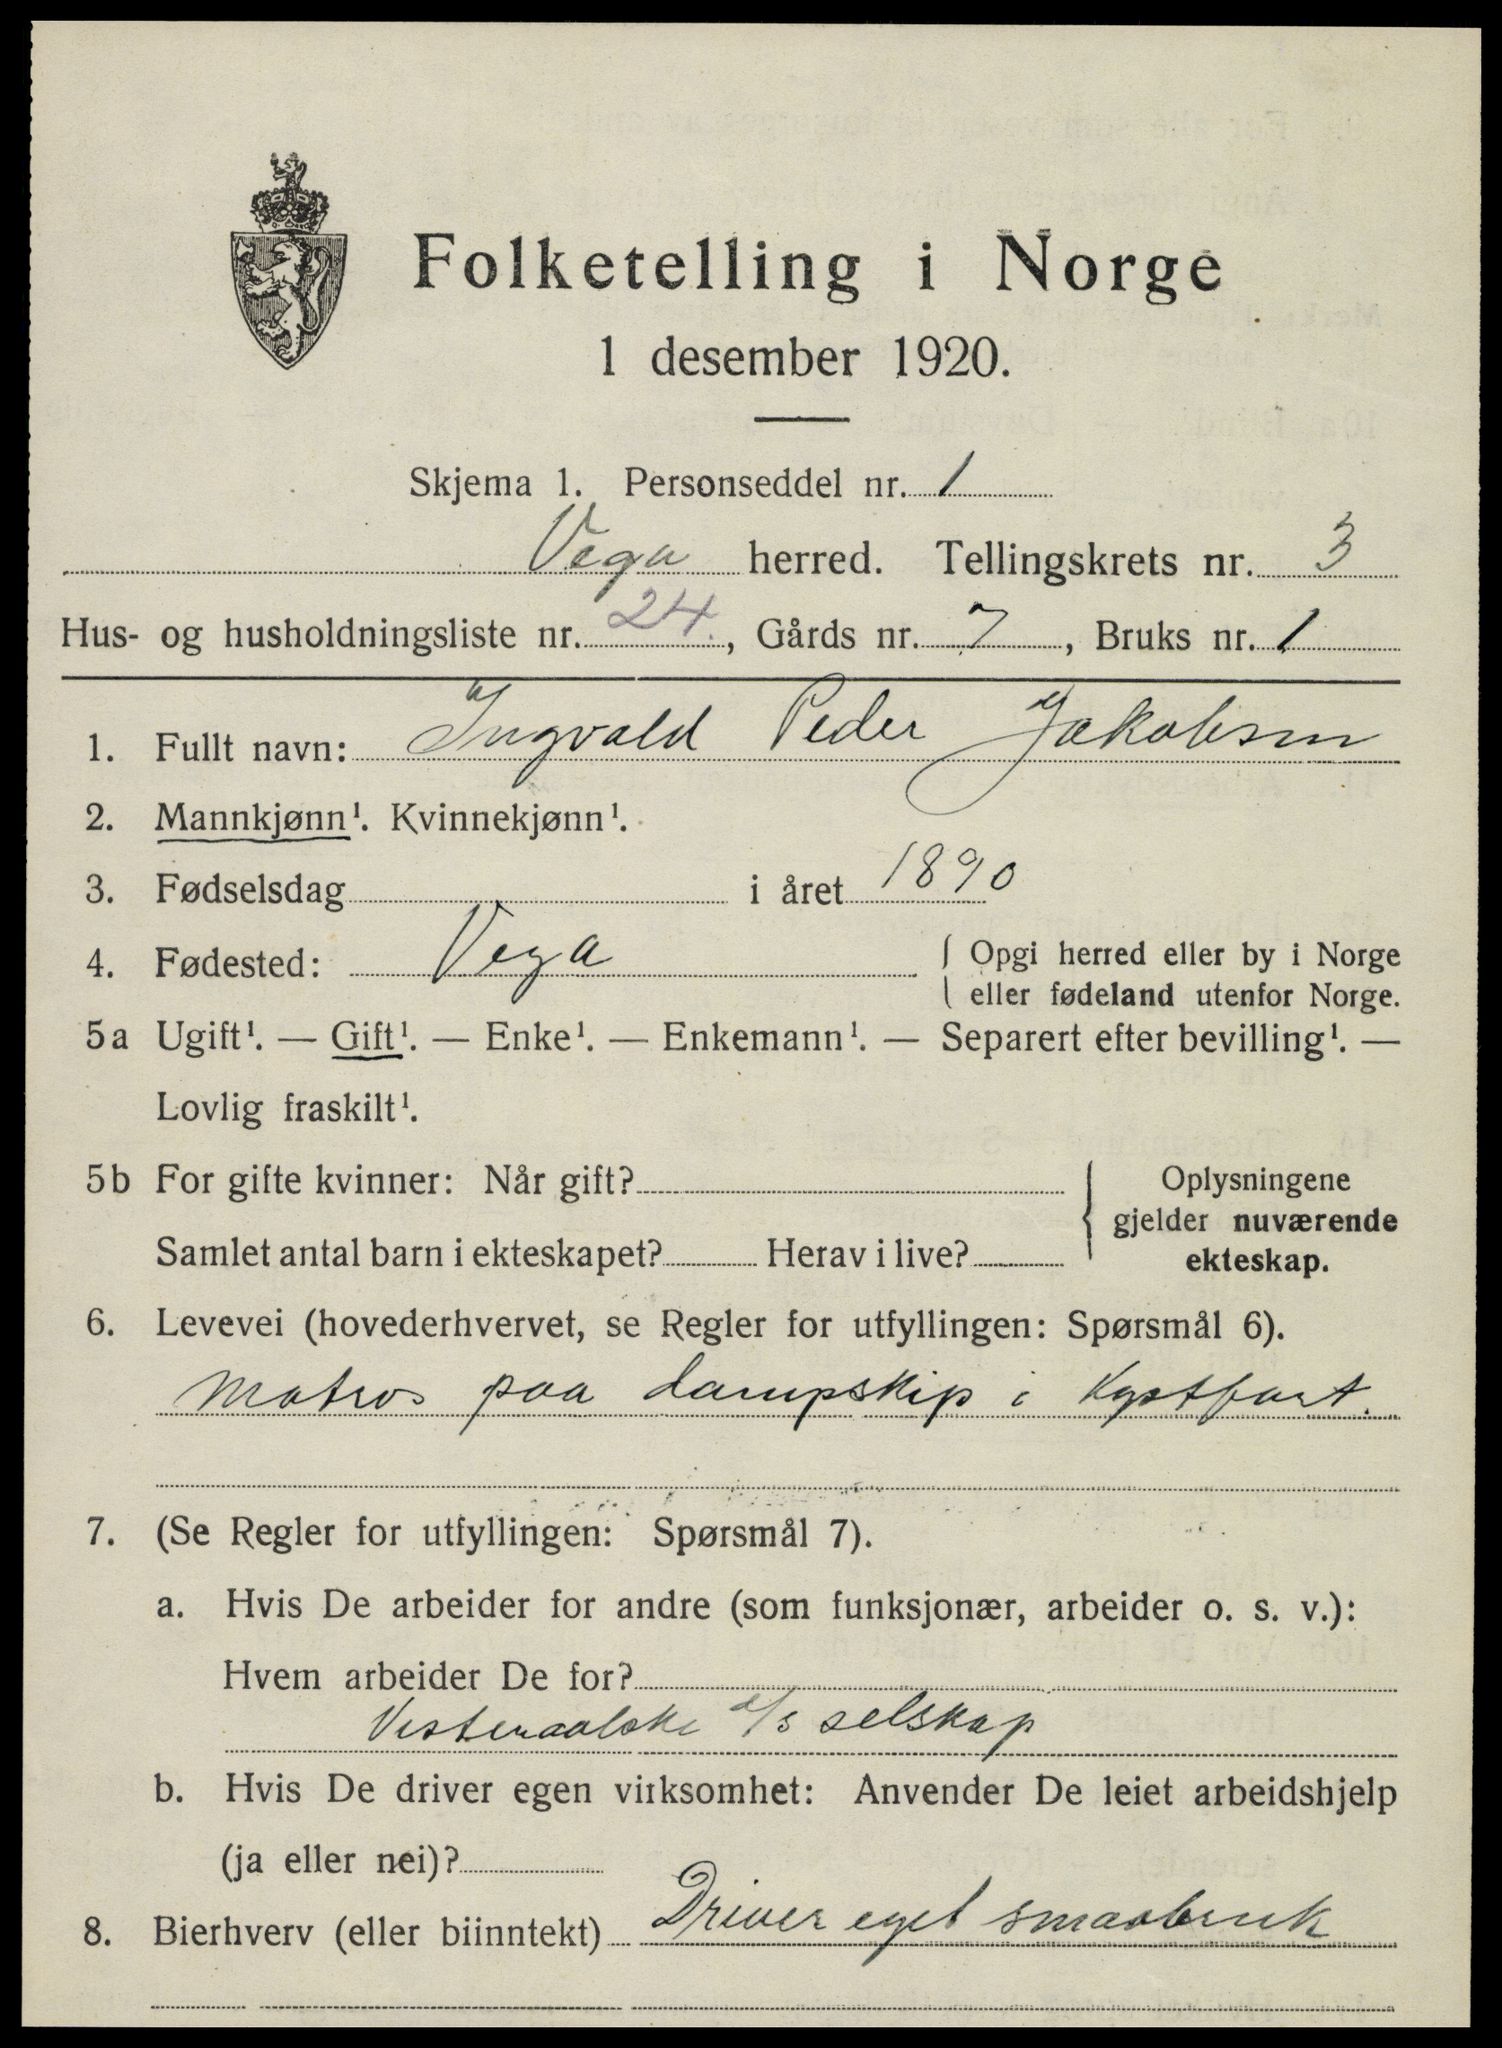 Folketelling i Norge
1 desember 1920.
Skjema 1. Personseddel nr. 1
Vega herred. Tellingskrets nr. 3
Hus- og husholdningsliste nr. 24., Gårds nr. 7, Bruks nr. 1
1. Fullt navn: Ingvald Peder Jakobsen
2. Mannkjønn¹. Kvinnekjønn¹.
3. Fødselsdag i året 1890
4. Fødested: Vega { Opgi herred eller by i Norge
eller fødeland utenfor Norge.
5a Ugift¹. — Gift¹. — Enke¹. — Enkemann¹. — Separert efter bevilling¹. —
Lovlig fraskilt¹.
5b For gifte kvinner: Når gift?
Samlet antal barn i ekteskapet? Herav i live?
{ Oplysningene
gjelder nuværende
ekteskap.
6. Levevei (hovederhvervet, se Regler for utfyllingen: Spørsmål 6).
Matros paa dampskip i Kystfart.
7. (Se Regler for utfyllingen: Spørsmål 7).
a. Hvis De arbeider for andre (som funksjonær, arbeider o. s. v.):
Hvem arbeider De for?
Vesteraalske d/s selskap
b. Hvis De driver egen virksomhet: Anvender De leiet arbeidshjelp
(ja eller nei)?
8. Bierhverv (eller biinntekt) Driver eget smaabruk